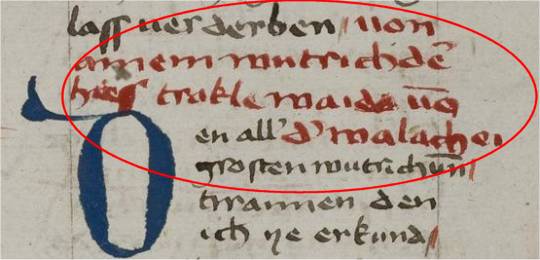 lass uerderben / uon
ainem wutrich dē
hies trakle waida uō
Den all' d' walachei
grosten wutrich un̄
tirannen den
ich ye erkund /